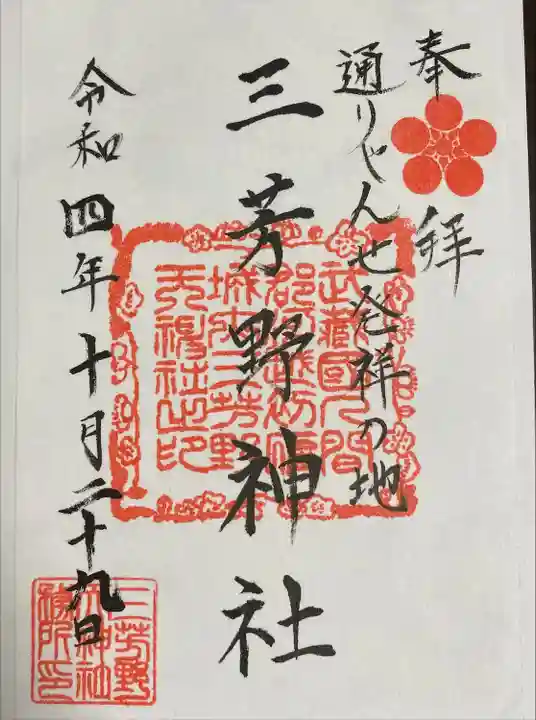 奉拝
通りゃんせ発祥の地
三芳野神社
令和四年十月二十九日
武蔵国入間
郡河越初雁
城内三芳野
天神社之印
三芳野
神社
務所印